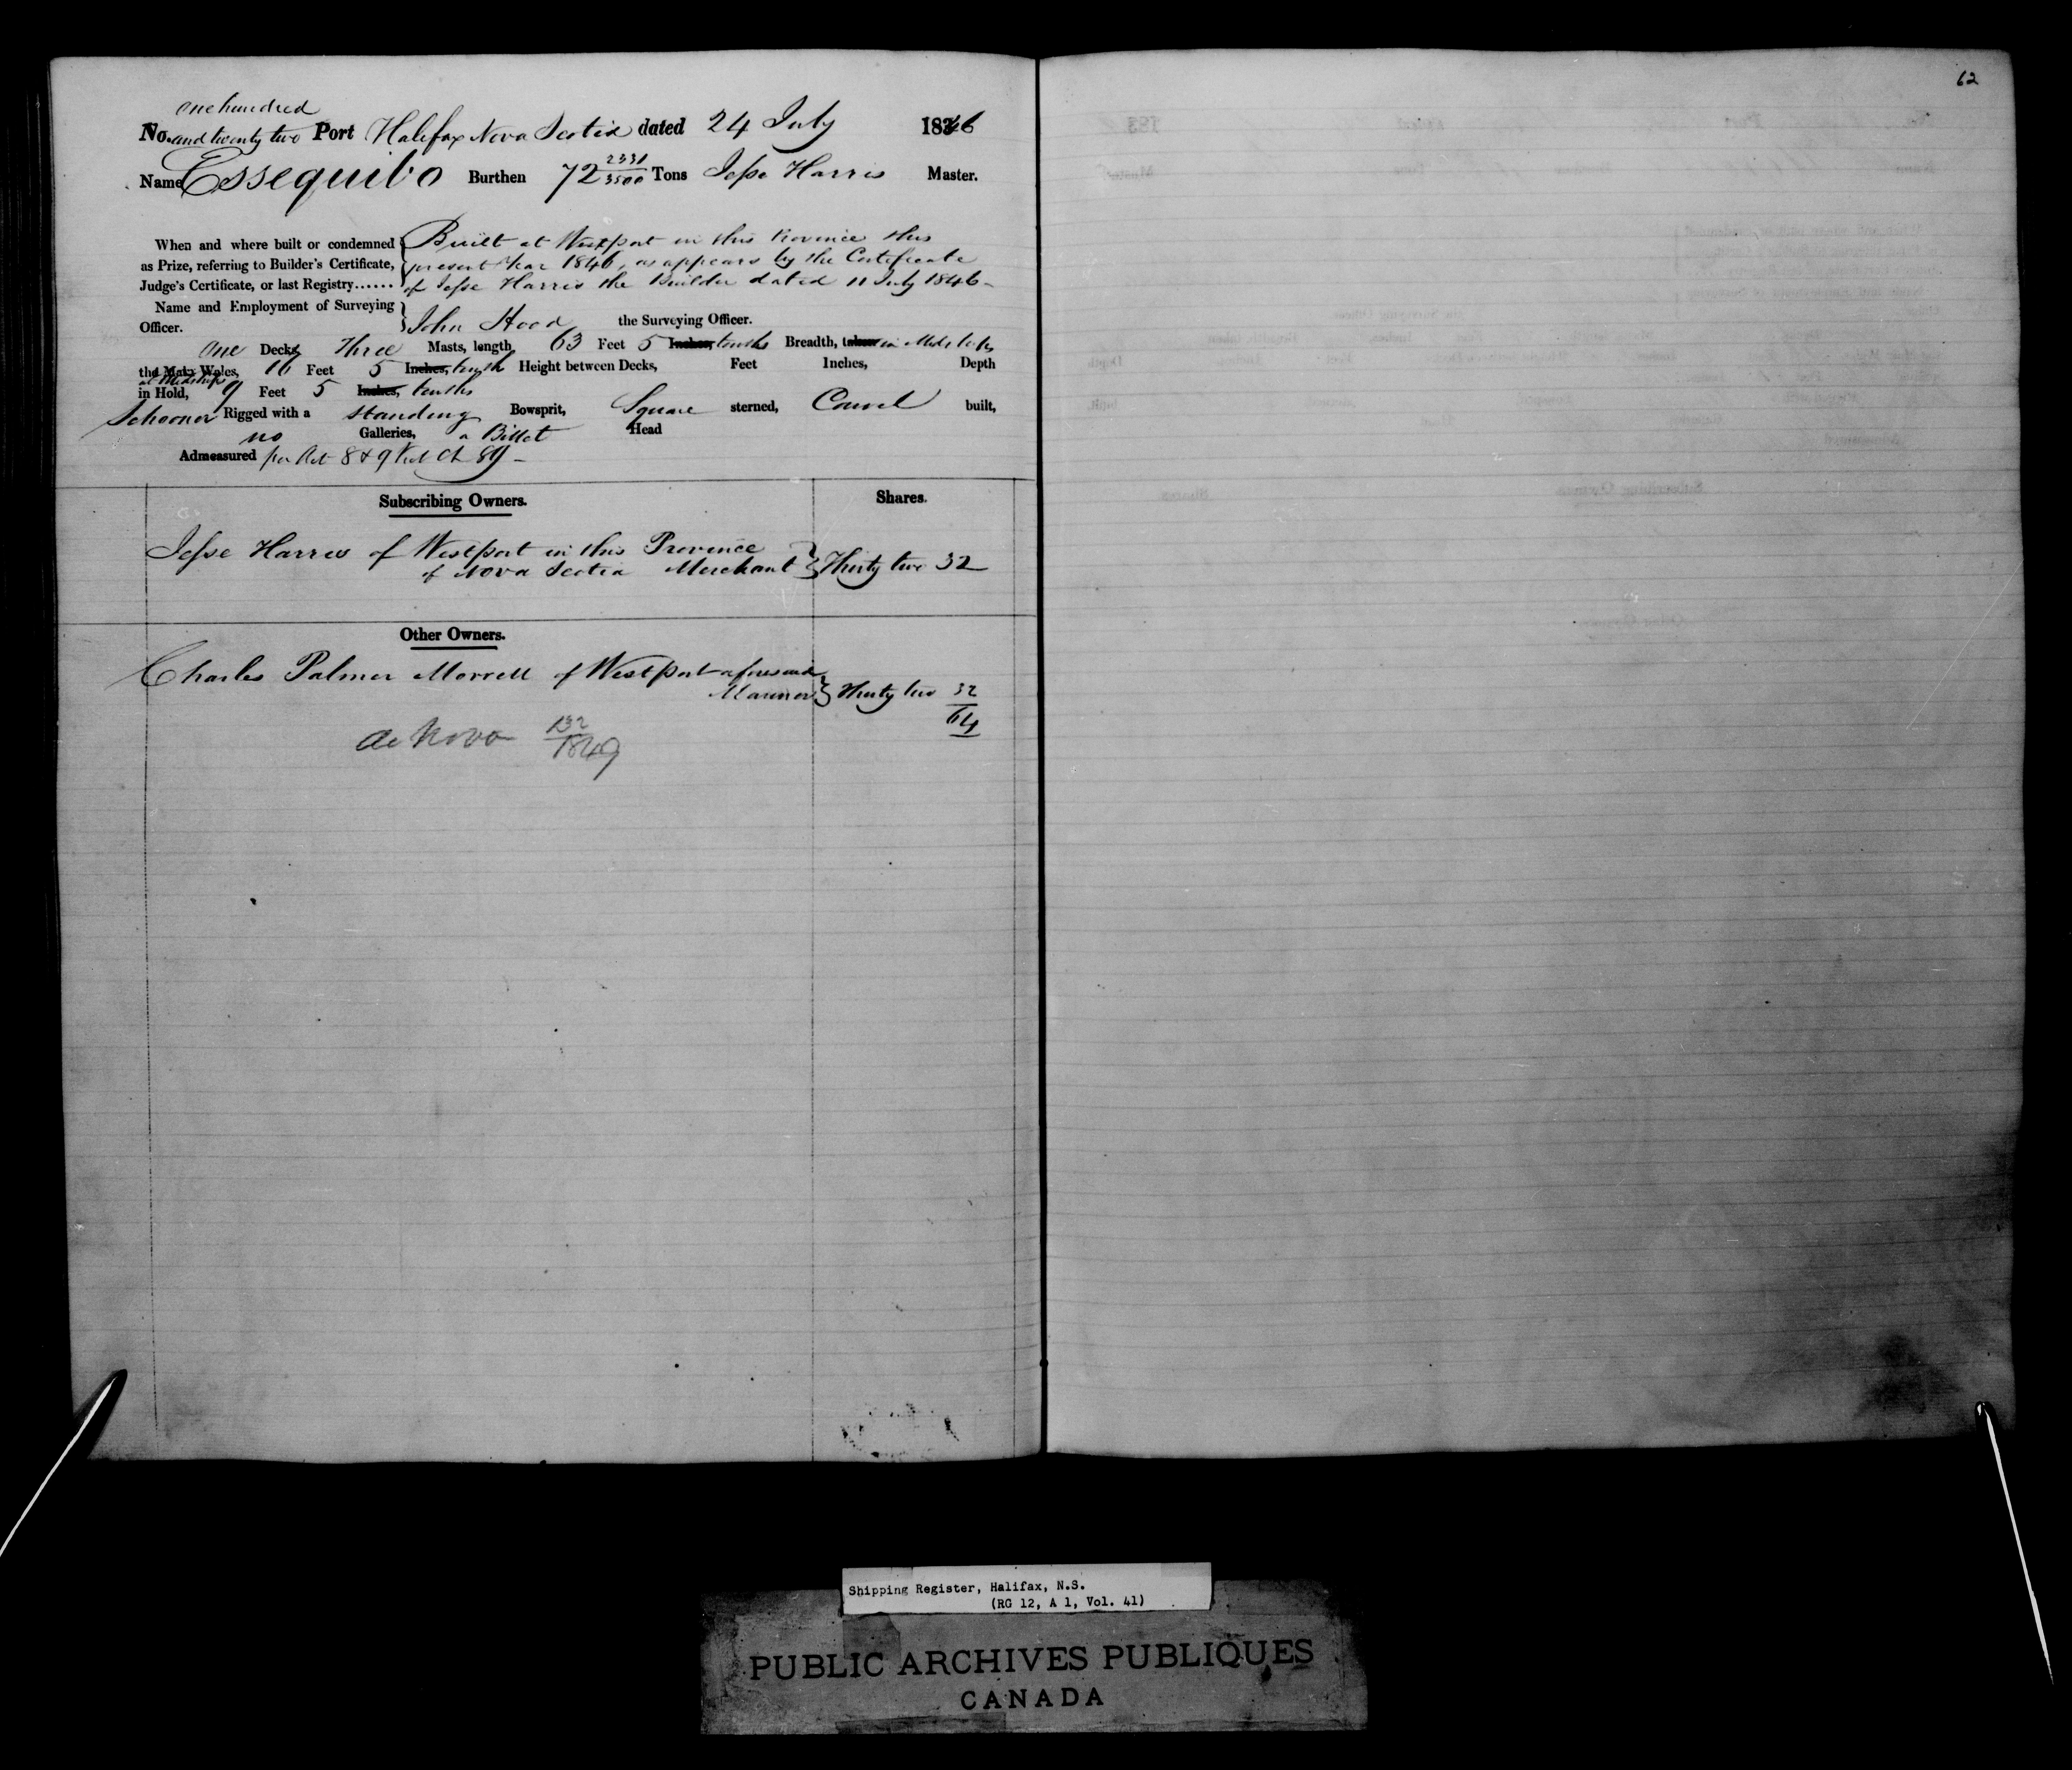 62
one hundred
No. and twenty two Port Halifax Nova Scotia dated 24 July 1846
Name Essequibo Burthen 72 2331/3500 Tons Jesse Harris Master.
When and where built or condemned as Prize, referring to Builder's Certificate, Judge's Certificate, or last Registry......
Built at Westport in this Province this
present Year 1846, as appears by the Certificate
of Jesse Harris the Builder dated 11 July 1846-
Name and Employment of Surveying Officer.
John Hood the Surveying Officer.
One Decks Three Masts, length 63 Feet 5 Inches, tenths Breadth, taken in Midships
the Main Wales, 16 Feet 5 Inches, tenth Height between Decks, Feet Inches, Depth
at Midships
in Hold, 9 Feet 5 Inches, tenths
Schooner Rigged with a standing Bowsprit, Square sterned, Carvel built,
no Galleries, a Billet Head
Admeasured per Act 8 & 9 Vict Ch 89-
Subscribing Owners. Shares.
Jesse Harris of Westport in this Province
of Nova Scotia Merchant } Thirty two 32
Other Owners.
Charles Palmer Morrell of Westport aforesaid
Mariner } Thirty two 32
64
de Novo 132/1849
Shipping Register, Halifax, N.S.
(RG 12, A 1, Vol. 41)
PUBLIC ARCHIVES PUBLIQUES
CANADA